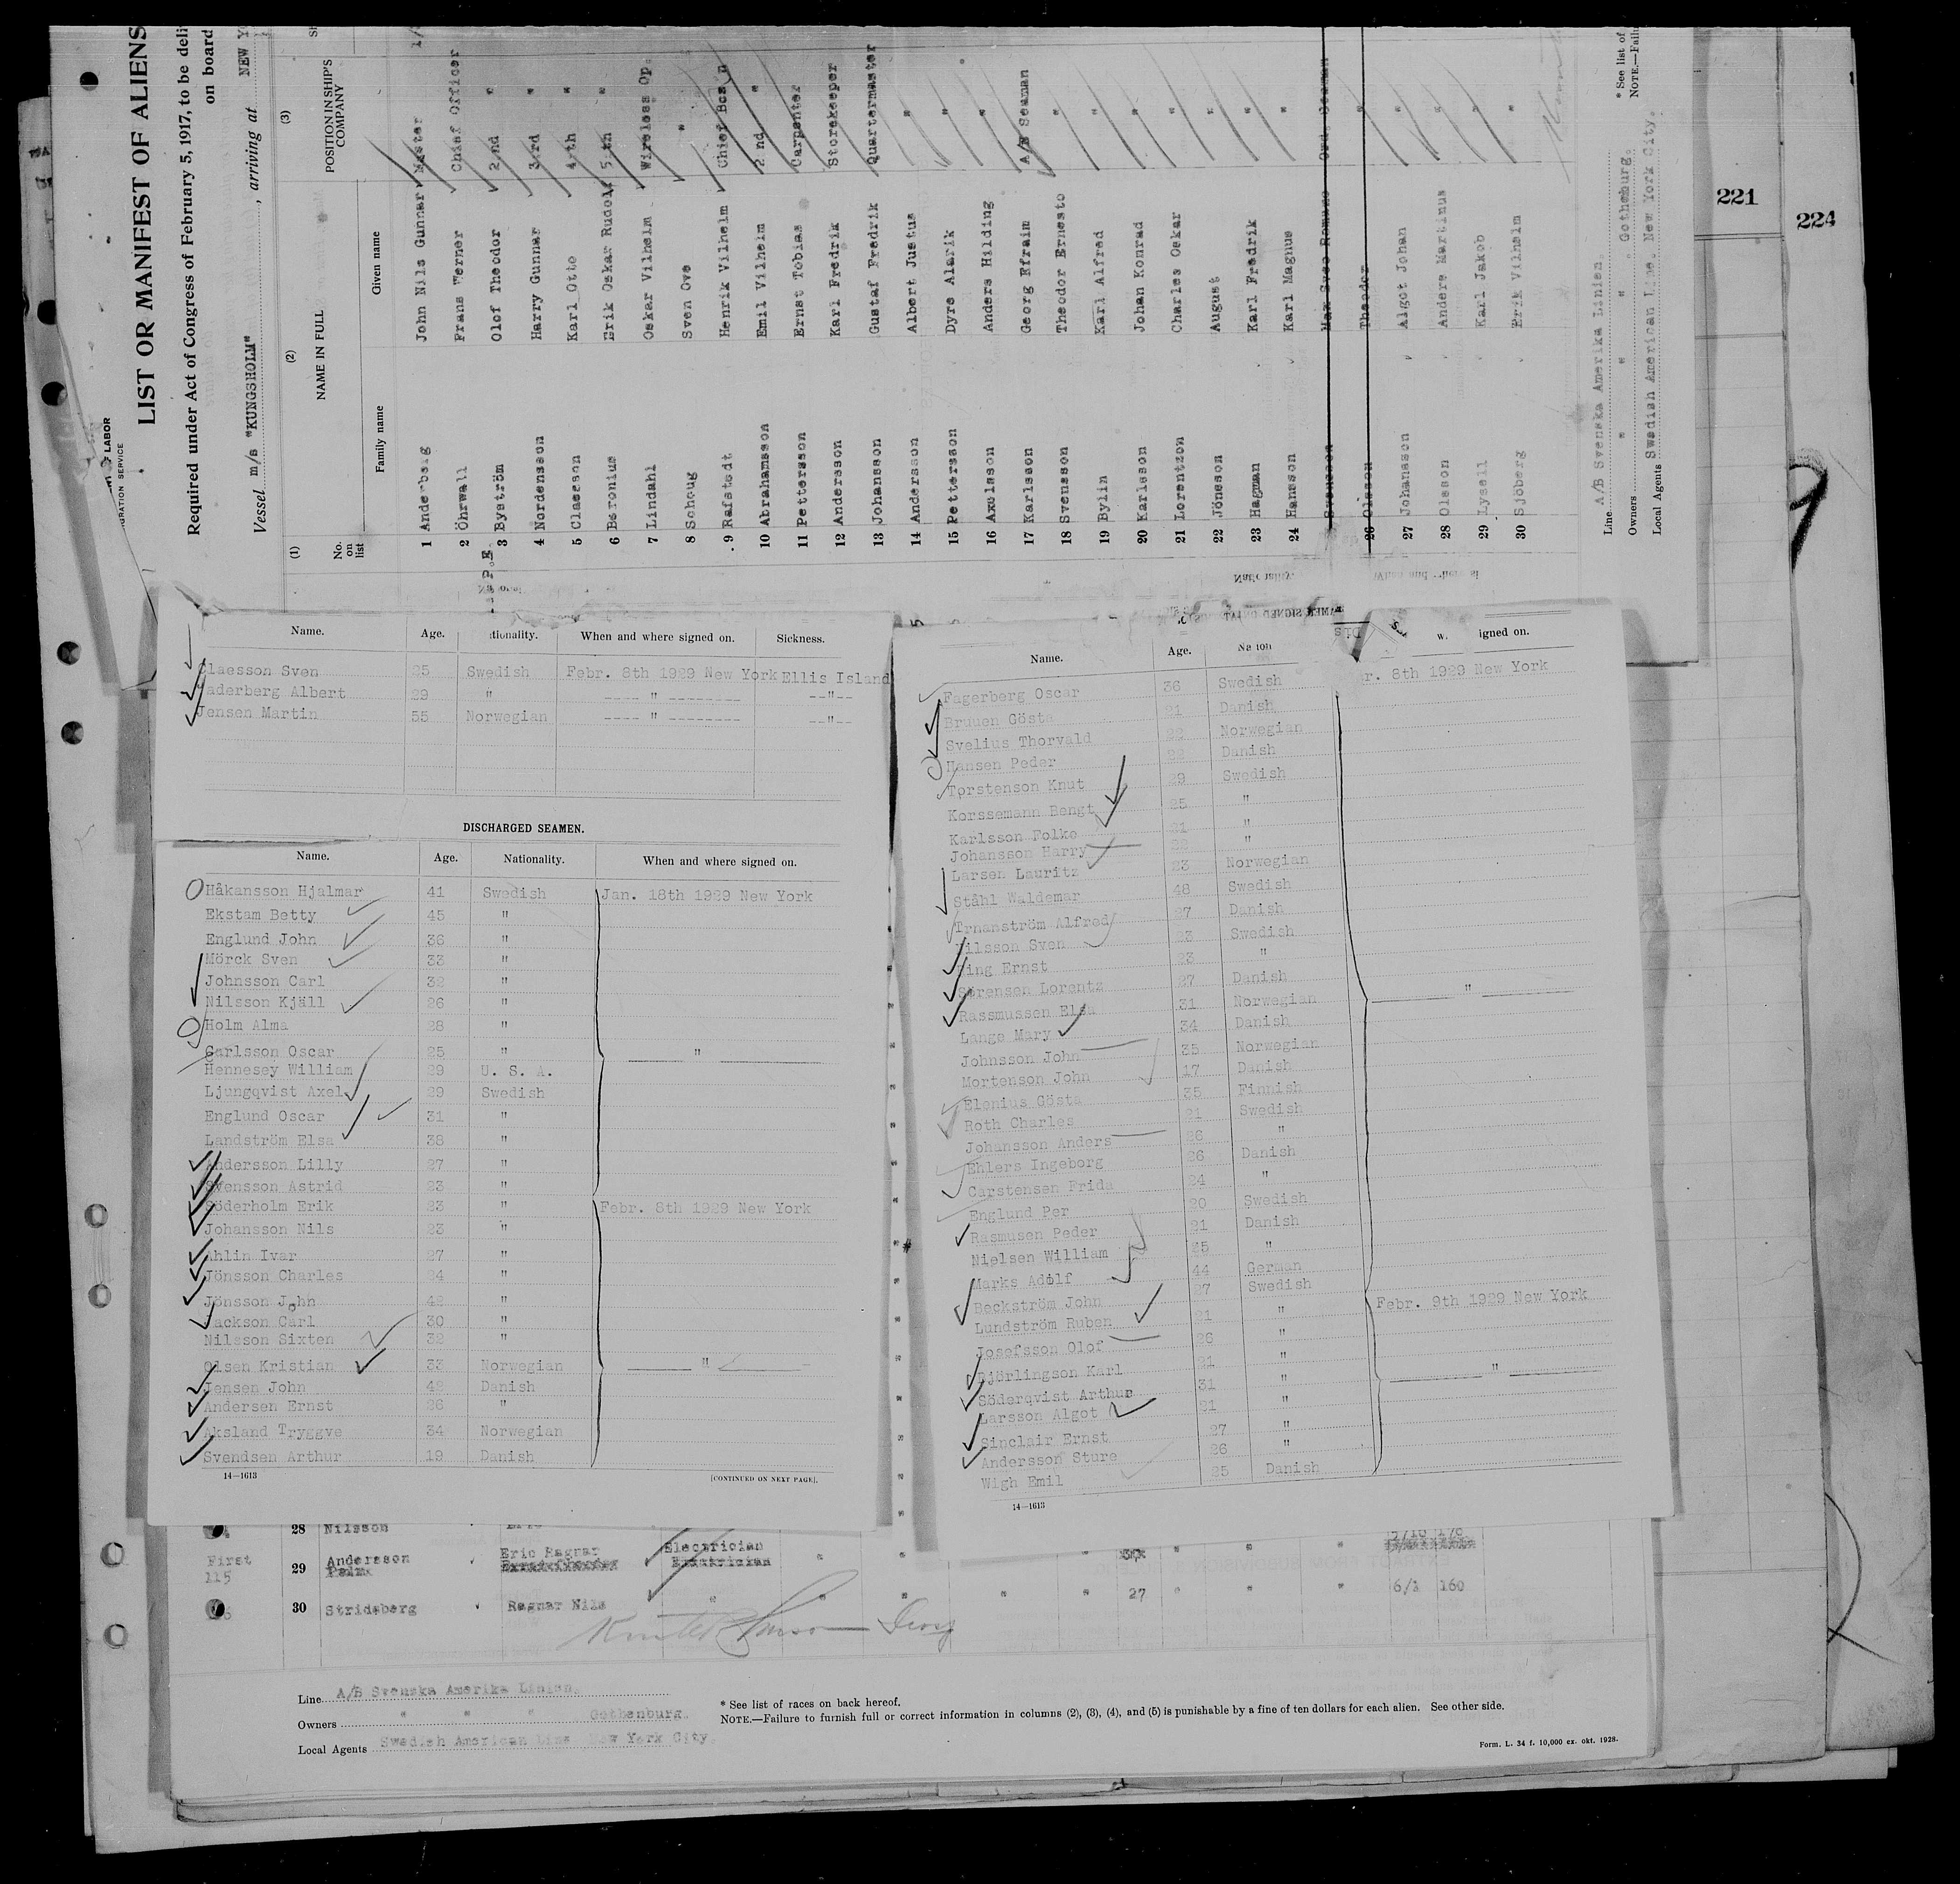 LIST OR MANIFEST OF ALIENS
Required under Act of Congress of February 5, 1917, to be deli
on board
Vessel m/s "KUNGSHOLM", arriving at NEW Y
LABOR
GRATION SERVICE
(1) (2) (3)
No. on list NAME IN FULL POSITION IN SHIP'S COMPANY
Family name Given name
1 Anderberg John Nils Gunnar Master
2 Öhrwall Frans Werner Chief Officer
3 Byström Olof Theodor 2nd "
4 Nordensson Harry Gunnar 3rd "
5 Claesson Karl Otto 4th "
6 Beronius Erik Oskar Rudolf 5th "
7 Lindahl Oskar Vilhelm Wireless Op.
8 Schoug Sven Ove "
9 Rafstedt Henrik Vilhelm Chief Bos'n
10 Abrahamsson Emil Vilhelm 2nd "
11 Pettersson Ernst Tobias Carpenter
12 Andersson Karl Fredrik Storekeeper
13 Johansson Gustaf Fredrik Quartermaster
14 Andersson Albert Justus "
15 Pettersson Dyre Alarik "
16 Axelsson Anders Hilding "
17 Karlsson Georg Efraim A/B Seaman
18 Svensson Theodor Ernesto "
19 Bylin Karl Alfred "
20 Karlsson Johan Konrad "
21 Lorentzon Charles Oskar "
22 Jönsson August "
23 Hagman Karl Fredrik "
24 Hansson Karl Magnus "
Svensson
26 Olsson Theodor "
27 Johansson Algot Johan "
28 Olsson Anders Martinus "
29 Lysell Karl Jakob "
30 Sjöberg Erik Vilhelm "
Line A/B Svenska Amerika Linien.
Owners " " " Gothenburg.
Local Agents Swedish American Line. New York City.
* See list of
NOTE.—Failu
221
224
Name. Age. ationality. When and where signed on. Sickness.
Claesson Sven 25 Swedish Febr. 8th 1929 New York Ellis Island
aderberg Albert 29 " ---- " -------- --"--
Jensen Martin 55 Norwegian ---- " -------- --"--
DISCHARGED SEAMEN.
Name. Age. Nationality. When and where signed on.
Håkansson Hjalmar 41 Swedish Jan. 18th 1929 New York
Ekstam Betty 45 "
Englund John 36 "
Mörck Sven 33 "
Johnsson Carl 32 "
Nilsson Kjäll 26 "
Holm Alma 28 "
Carlsson Oscar 25 " "
Hennesey William 29 U. S. A.
Ljungqvist Axel 29 Swedish
Englund Oscar 31 "
Landström Elsa 38 "
Andersson Lilly 27 "
Svensson Astrid 23 "
Söderholm Erik 23 " Febr. 8th 1929 New York
Johansson Nils 23 "
Ahlin Ivar 27 "
Jönsson Charles 24 "
Jönsson John 42 "
Jackson Carl 30 "
Nilsson Sixten 32 "
Olsen Kristian 33 Norwegian "
Jensen John 42 Danish
Andersen Ernst 26 "
Aksland Tryggve 34 Norwegian
Svendsen Arthur 19 Danish
14—1613 [CONTINUED ON NEXT PAGE].
Name. Age. igned on.
Fagerberg Oscar 36 Swedish r. 8th 1929 New York
Bruuen Gösta 21 Danish
Svelius Thorvald 22 Norwegian
Hansen Peder 22 Danish
Torstenson Knut 29 Swedish
Korssemann Bengt 25 "
Karlsson Folke 21 "
Johansson Harry 22 "
Larsen Lauritz 23 Norwegian
Ståhl Waldemar 48 Swedish
Trnanström Alfred 27 Danish
Nilsson Sven 23 Swedish
Ring Ernst 23 "
Sörensen Lorentz 27 Danish
Rassmussen Elsa 31 Norwegian "
Lange Mary 34 Danish
Johnsson John 35 Norwegian
Mortenson John 17 Danish
Elenius Gösta 35 Finnish
Roth Charles 21 Swedish
Johansson Anders 26 "
Ehlers Ingeborg 26 Danish
Carstensen Frida 24 "
Englund Per 20 Swedish
Rasmusen Peder 21 Danish
Nielsen William 25 "
Marks Adolf 44 German
Beckström John 27 Swedish
Lundström Ruben 21 " Febr. 9th 1929 New York
Josefsson Olof 26 "
Björlingson Karl 21 "
Söderqvist Arthur 31 " "
Larsson Algot 21
Sinclair Ernst 27 "
Andersson Sture 26 "
Wigh Emil 25 Danish
14—1613
28 Nilsson
First 115 29 Andersson Eric Ragnar Electrician
30 Stridsberg Ragnar Nils " 27 6/1 160
Line A/B Svenska Amerika Linien.
Owners " " " Gothenburg.
Local Agents Swedish American Line New York City.
* See list of races on back hereof.
NOTE.—Failure to furnish full or correct information in columns (2), (3), (4), and (5) is punishable by a fine of ten dollars for each alien. See other side.
Form. L. 34 f. 10,000 ex. okt. 1928.